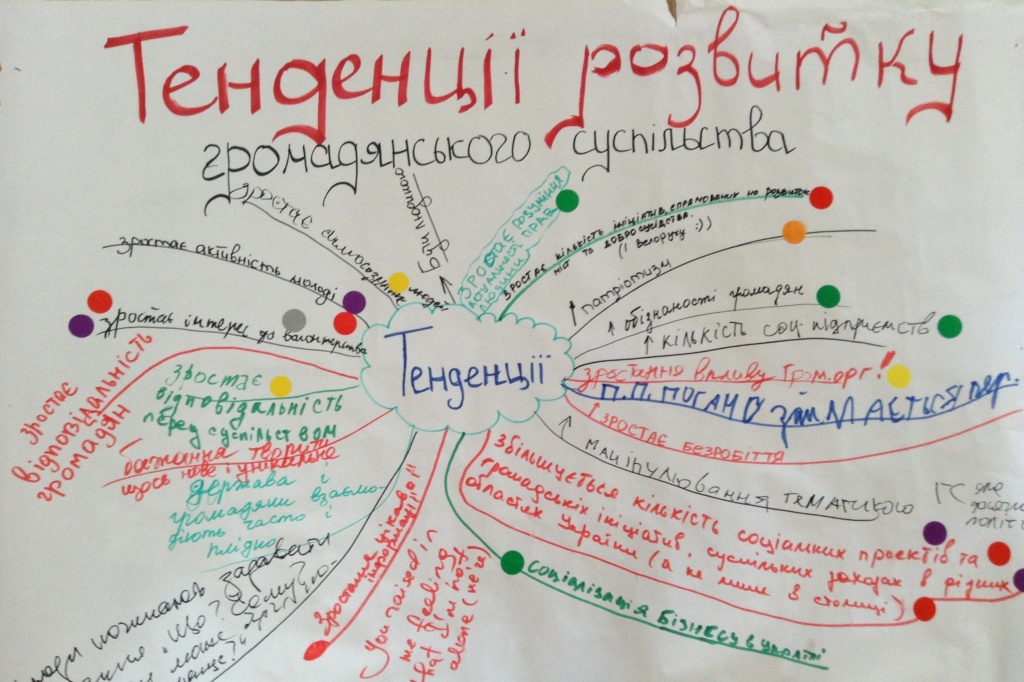 Тенденції розвитку
громадянського суспільства
зростає самосознание людей
Бути людиною
зростає розуміння
актуальності прав
людини
зростає кількість ініціатив, спрямованих на розвиток
та добросусідства.
(і велоруху :))
↑ патріотизм
↑ обізнаності громадян
↑ кількість соц. підприємств
зростання впливу гром.орг!
П.П. погано займається пер.
зростає безробіття
↑ маніпулювання тематикою ГС
для
політ
збільшується кількість соціальних проєктів та
громадських ініціатив, суспільних заходах в рідних
областях України (а не лише в столиці)
соціалізація бізнесу в Україні
Тенденції
зростає активність молоді
зростає інтерес до волонтерства
зростає
відповідальність
громадян
зростає
відповідальність
перед суспільством
бажання творити
щось нове і унікальне
держава і
громадяни взаємо-
діють часто і
плідно
люди починають задавати
"Що? Чому?
може
Зростання цікавої
інформації"
You raised in
me feeling
that I'm not
alone (не я)